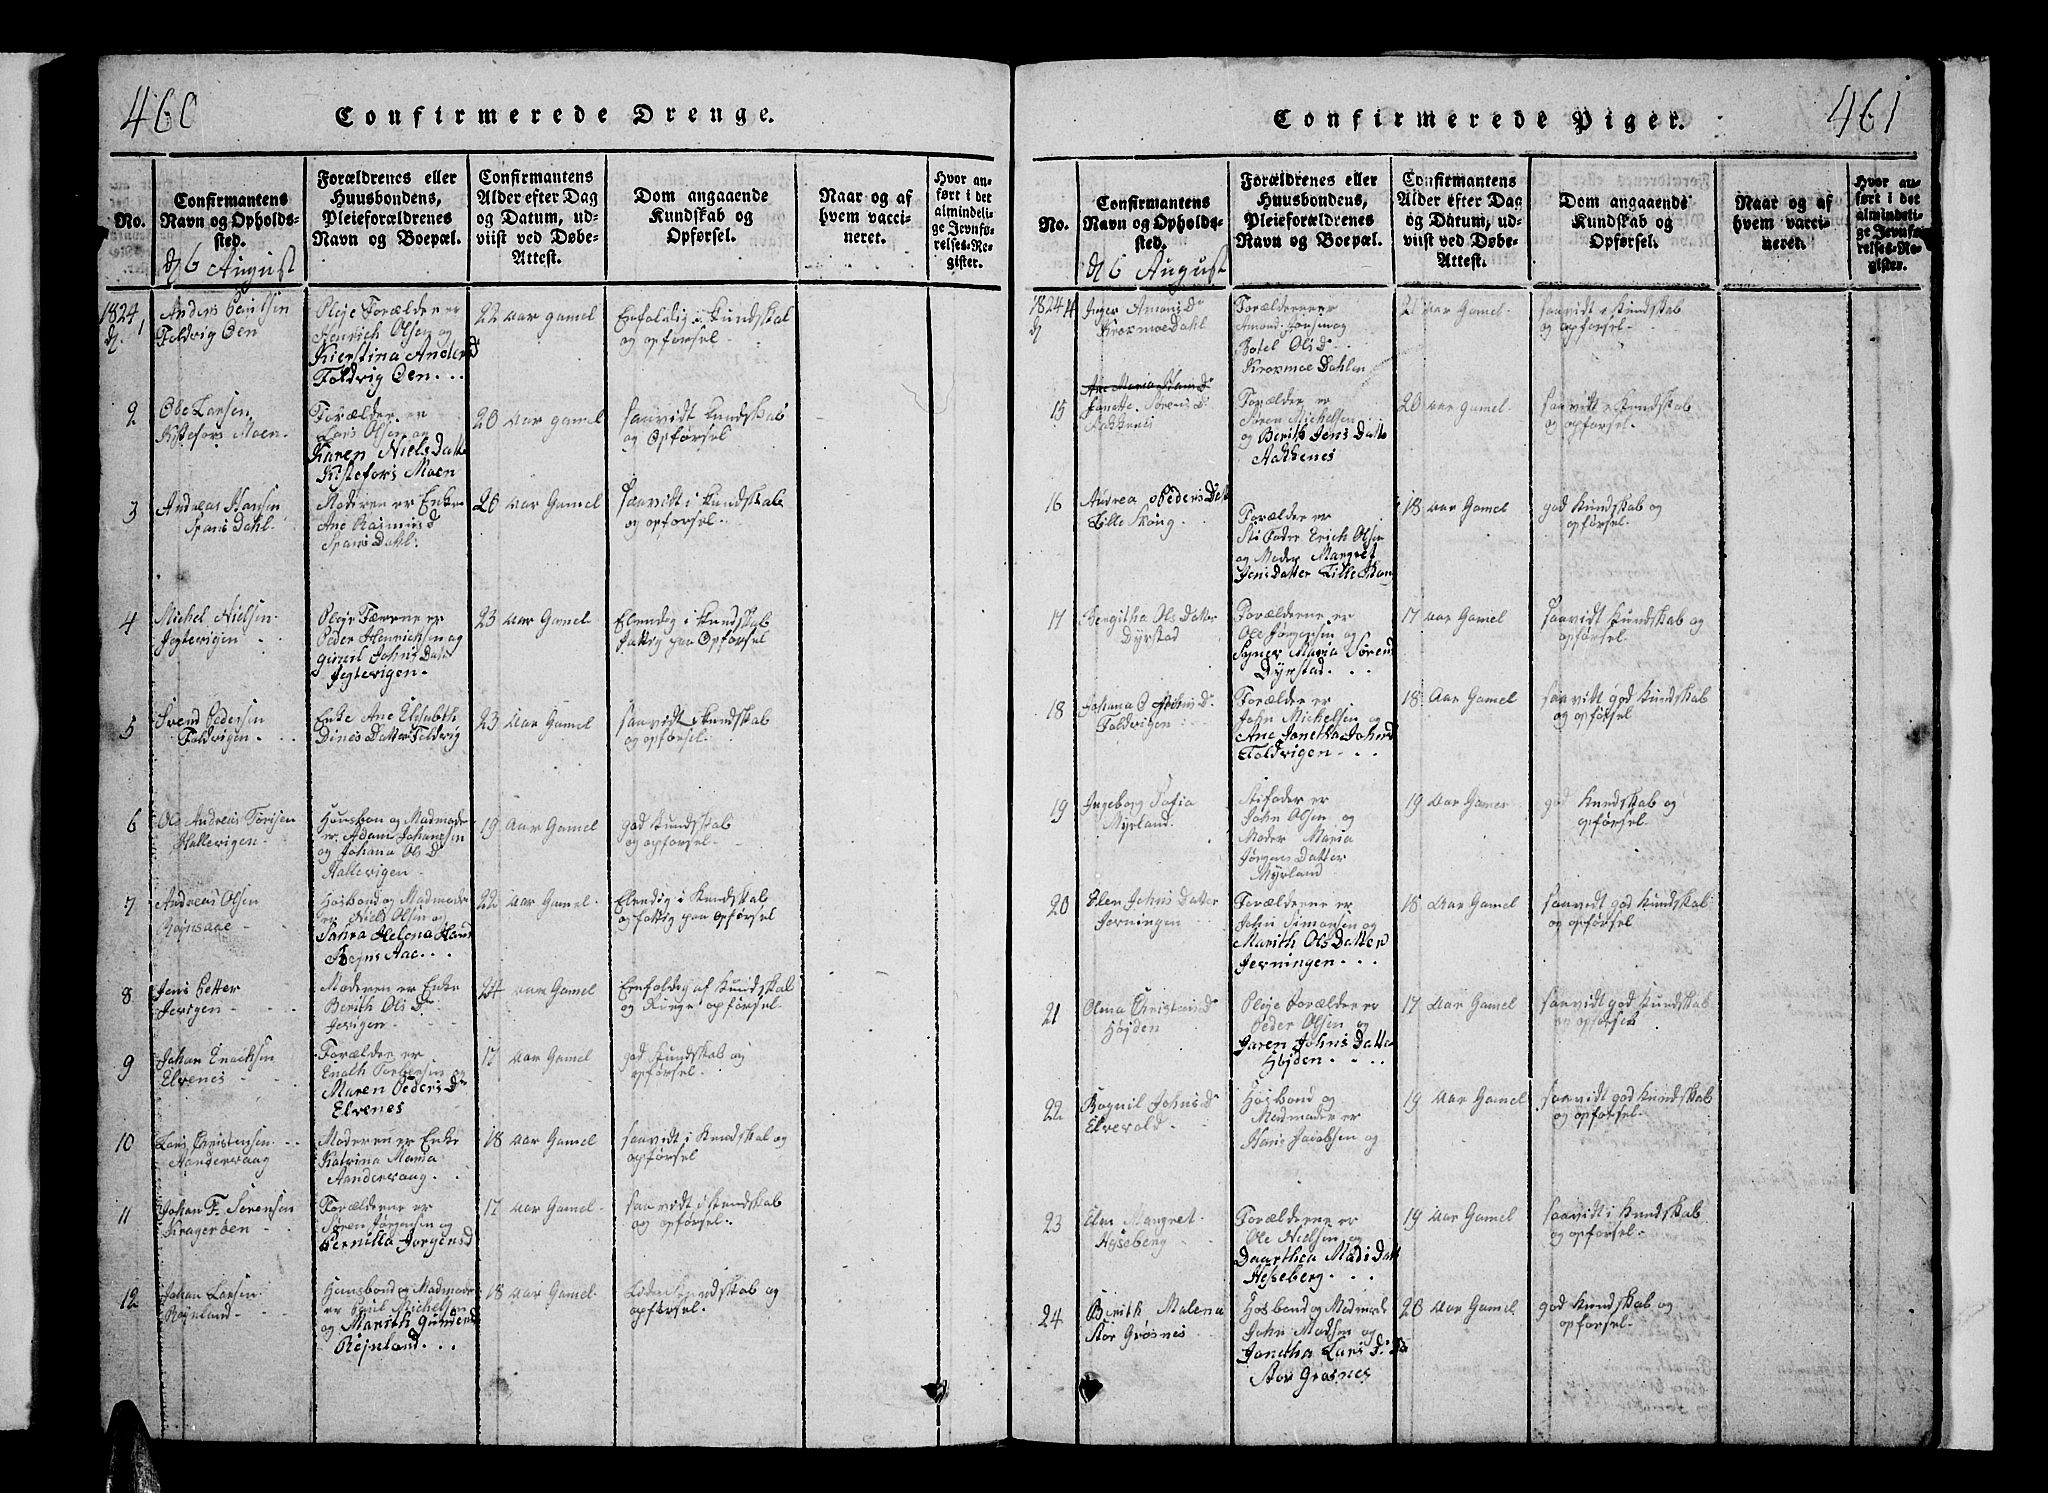 460
Confirmerede Drenge.
No.
Confirmantens
Navn og Opholds-
sted.
Forældrenes eller
Huusbondens,
Pleieforældrenes
Navn og Boepæl.
Confirmantens
Alder efter Dag
og Datum, ud-
viist ved Døbe-
Attest.
Dom angaaende
Kundskab og
Opførsel.
Naar og af
hvem vacci-
neret.
Hvor an-
ført i det
almindeli-
ge Jevnfø-
relses-Re-
gister.
d 6 August
1824
1
Foldvig Oen
Pleje Forælder er
Henrich Olsen og
Kierstina Anders
Foldvig Oen
22 Aar gamel
Eenfoldig i Kundskab
og opførsel
2
Ole Larsen
Kistefors Moen
Forælder er
Lars Olsen og
Karen Niels Datte
Kistefors Moen
20 Aar gamel
saavidt Kundskab
og Opførsel
3
Andreas Hansen
Spans Dahl
Moderen er Enke
Ane Rasmus d
Spans Dahl
20 Aar Gamel
saavidt i Kundskab
og opførsel
4
Michel Nielsen
Jegtevigen
Peder Henrichsen og
Johns Dat
Jegtevigen
23 Aar Gamel
Elendig i Kundskab
fattig paa Opførsel
5
Svend Pedersen
Foldvigen
Enke Ane Elisabth
Dines Datter Foldvig
23 Aar Gamel
saavidt Kundskab
og opførsel
6
Ole Andreas
Hallevigen
Housbon og Madmoder
er Adam Johansen
og Johana Ols D
Hallevigen
19 Aar Gamel
god Kundskab
og opførsel
7
Andreas Olsen
Røjnsaae
Hosbond og Madmoder
er Niels Olsen og
Helena Hans
Røjns Aae
22 Aar Gamel
Elendig i Kundskab
og fattig paa Opførsel
8
Jens Petter
Jevigen
Moderen er Enke
Berith Ols D
Jevigen
24 Aar Gamel
Eenfoldig af Kundskab
og Ringe opførsel
9
Johan
Elvenes
Forælder er
Maren Peders D
Elvenes
17 Aar Gamel
god Kundskab og
opførsel
10
Lars Christensen
Aandervaag
Moderen er Enke
Katrina Maria
Aandervaag
18 Aar Gamel
saavidt i Kundskab og
opførsel
11
Johan F. Sørensen
Kragerøen
Forælderne er
Søren Jørgensen og
Pernilla Jørgens d
17 Aar Gamel
saavidt i Kundskab
og opførsel
12
Johan Larsen
Røjnland
Housbond og Madmoder
er Poul Michelsen
og Marith
Røjnland
18 Aar Gamel
Kundskab og
opførsel
461
Confirmerede Piger.
No.
Confirmantens
Navn og Opholds-
sted.
Forældrenes eller
Huusbondens,
Pleieforældrenes
Navn og Boepæl.
Confirmantens
Alder efter Dag
og Datum, ud-
viist ved Døbe-
Attest.
Dom angaaende
Kundskab og
Opførsel.
Naar og af
hvem vacci-
neret.
Hvor an-
ført i det
almindeli-
ge Jevnfø-
relses-Re-
gister.
d 6 August
1824 14
Inger Amons D
Kroxmoe Dahl
Forælderne er
Botel Ols D
Kroxmoe Dahlen
21 Aar Gamel
saavidt Kundskab
og opførsel
15
Janette Sørens D
Forælder er
Søren Michelsen
og Berith Jens Datte
Aakkenes
20 Aar gamel
saavidt Kundskab
og opførsel
16
Andrea Peders Dat
Lille
Forælder er
Sti Fader Erich Olsen
og Moder Margret
Jens Datter Lille
18 Aar Gamel
god Kundskab og
opførsel
17
Bergitha Ols Datter
Dyrstad
Forælderne er
Ole Jørgensen og
Maria Sørens
Dyrstad
17 Aar Gamel
saavidt Kundskab og
opførsel
18
Foldvigen
Forælder er
John Michelsen og
Ane Janetha Johans
Foldvigen
18 Aar Gamel
saavidt god Kundskab
og opførsel
19
Ingeborg Sofia
Myrland
Stifader er
John Olsen og
Moder Maria
Jørgens Datter
Myrland
19 Aar Gamel
god Kundskab og
opførsel
20
Elen Johns Datter
Jevningen
Forælderne er
John Simonsen og
Marith Ols Datter
Jevningen
18 Aar Gamel
saavidt god Kundskab
og opførsel
21
Højden
Pleje Forælder er
Peder Olsen og
Karen Johns Datte
Højden
17 Aar Gamel
saavidt god Kundskab
og opførsel
22
Rognil Johns D
Elvevold
Hosbond og
Madmoder er
Hans Jacobsen og
19 Aar Gamel
saavidt god Kundskab
og opførsel
23
Elen Margret
Hesseberg
Forælderne er
Ole Nielsen og
Daarthea Mads Datt
Hesseberg
19 Aar Gamel
saavidt i Kundskab
og opførsel
24
Berith Malena
Stor Grosnes
Hosbond og Madmode
John Madsen og
Janetha Lars D
Stor Grosnes
20 Aar Gamel
god Kundskab og
opførsel